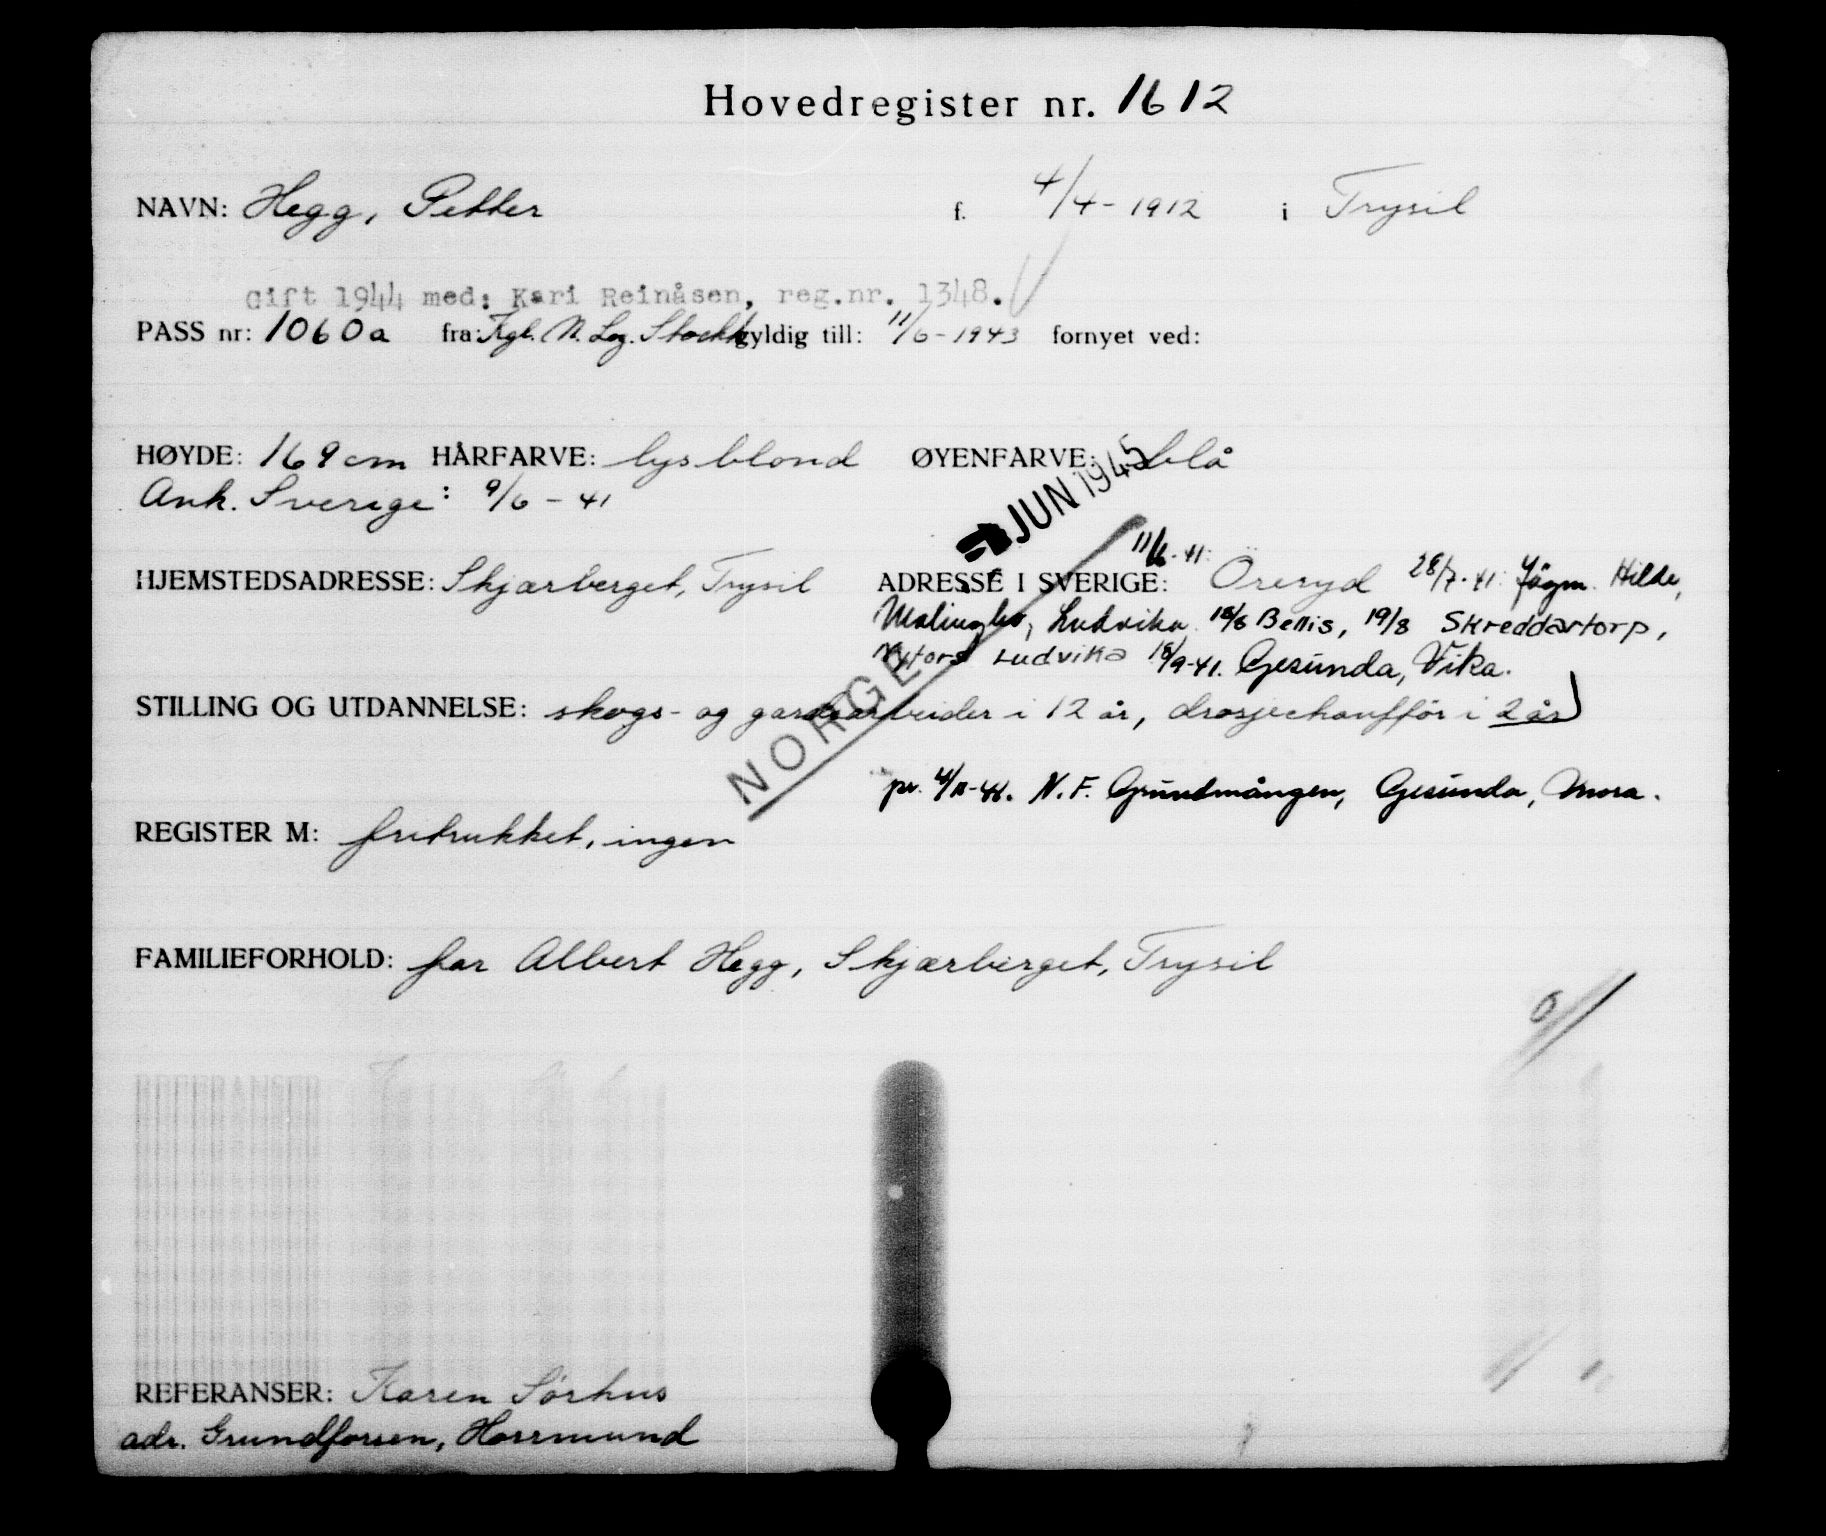 Hovedregister nr. 1612
NAVN: Hegg, Petter f. 4/4-1912 i Trysil
Gift 1944 med: Kari Reinåsen, reg.nr. 1348.
PASS nr: 1060a fra: Kgl. N. Leg. Stockh. gyldig till: 11/6-1943 fornyet ved:
HØYDE: 169 cm HÅRFARVE: lys blond ØYENFARVE: blå
Ank. Sverige: 9/6-41
JUN 1945
HJEMSTEDSADRESSE: Skjærberget, Trysil ADRESSE I SVERIGE: 11/6-41: Öreryd 28/7-41: Jägm. Hilde,
Ludvika 18/8 Bellis, 19/8 Skreddartorp,
Ludvika 18/9-41. Gesunda, Vika.
NORGE
STILLING OG UTDANNELSE: skogs- og gardsarbeider i 12 år, drosjechaufför i 2 år
pr. N.F. Grundmången, Gesunda, Mora.
REGISTER M: fritrukket, ingen
FAMILIEFORHOLD: far Albert Hegg, Skjærberget, Trysil
REFERANSER: Karen Sörhus
adr. Grundforsen, Horrmund